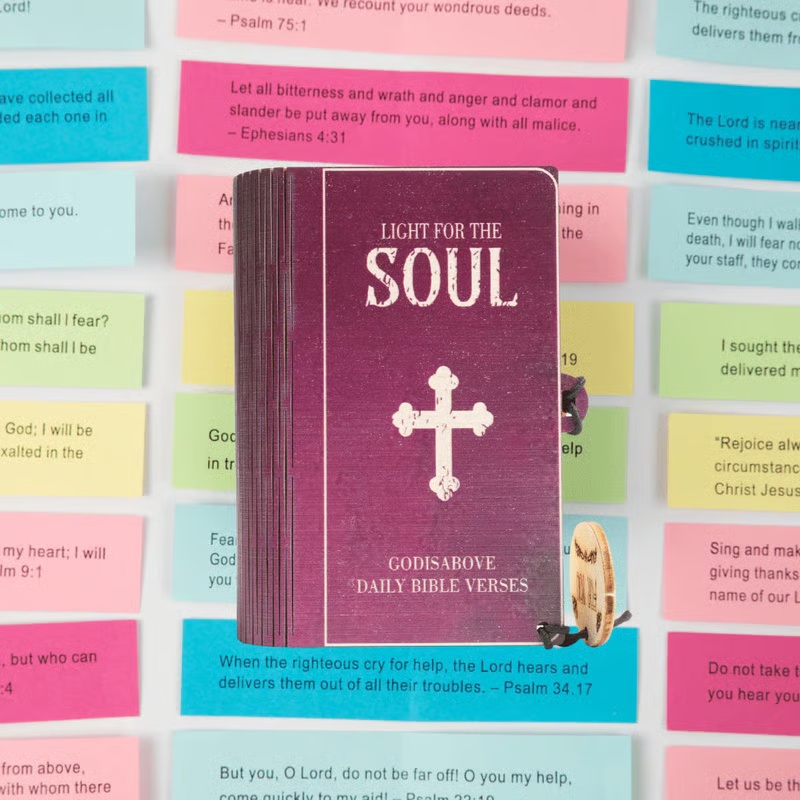 Lord!
is near. We recount your wondrous deeds.
– Psalm 75:1
The righteous
delivers them
ave collected all
ded each one in
Let all bitterness and wrath and anger and clamor and
slander be put away from you, along with all malice.
– Ephesians 4:31
The Lord is near
crushed in spirit
ome to you.
hing in
the
Even though I walk
death, I will fear no
your staff, they com
LIGHT FOR THE
SOUL
GODISABOVE
DAILY BIBLE VERSES
hom shall I fear?
hom shall I be
19
I sought the
delivered m
God; I will be
xalted in the
God
in tr
elp
"Rejoice alw
circumstanc
Christ Jesus
my heart; I will
lm 9:1
Fear
God
you
Sing and mak
giving thanks
name of our L
, but who can
:4
When the righteous cry for help, the Lord hears and
delivers them out of all their troubles. – Psalm 34.17
Do not take t
you hear you
from above,
with whom there
But you, O Lord, do not be far off! O you my help,
come quickly to my aid! – Psalm 22:19
Let us be th